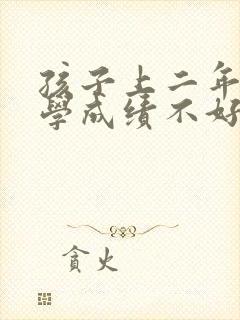 孩子上二年
學成績不好
貪火